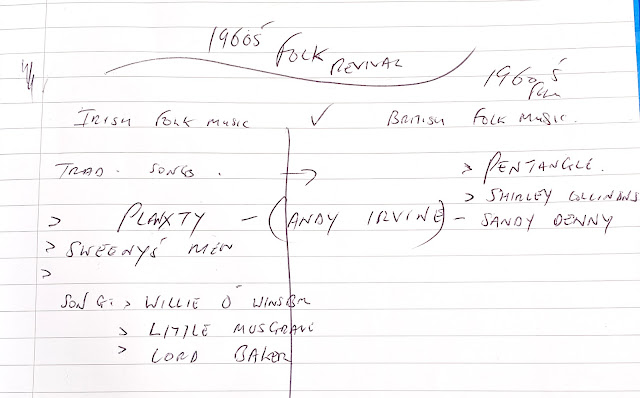 1960s' FOLK REVIVAL
1960's FOLK
IRISH FOLK MUSIC ✓ BRITISH FOLK MUSIC.
TRAD. SONGS. → > PENTANGLE.
> SHIRLEY COLLINANS
> PLANXTY - (ANDY IRVINE) - SANDY DENNY
> SWEENYS' MEN
>
SONG: > WILLIE O' WINSBR
> LITTLE MUSGRAVE
> LORD BAKER